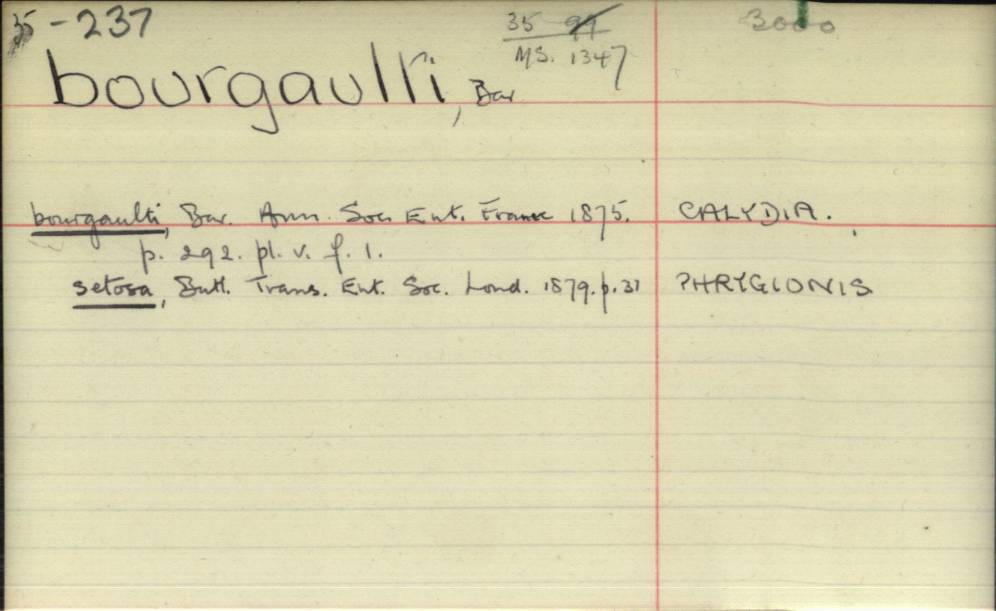 35 - 237
35 97
MS. 1347
3000
bourgaulti, Bar
bourgaulti, Bar. Ann. Soc. Ent. France 1875. CALYDIA.
p. 292. pl. v. f. 1.
setosa, Butl. Trans. Ent. Soc. Lond. 1879. p. 31 PHRYGIONIS